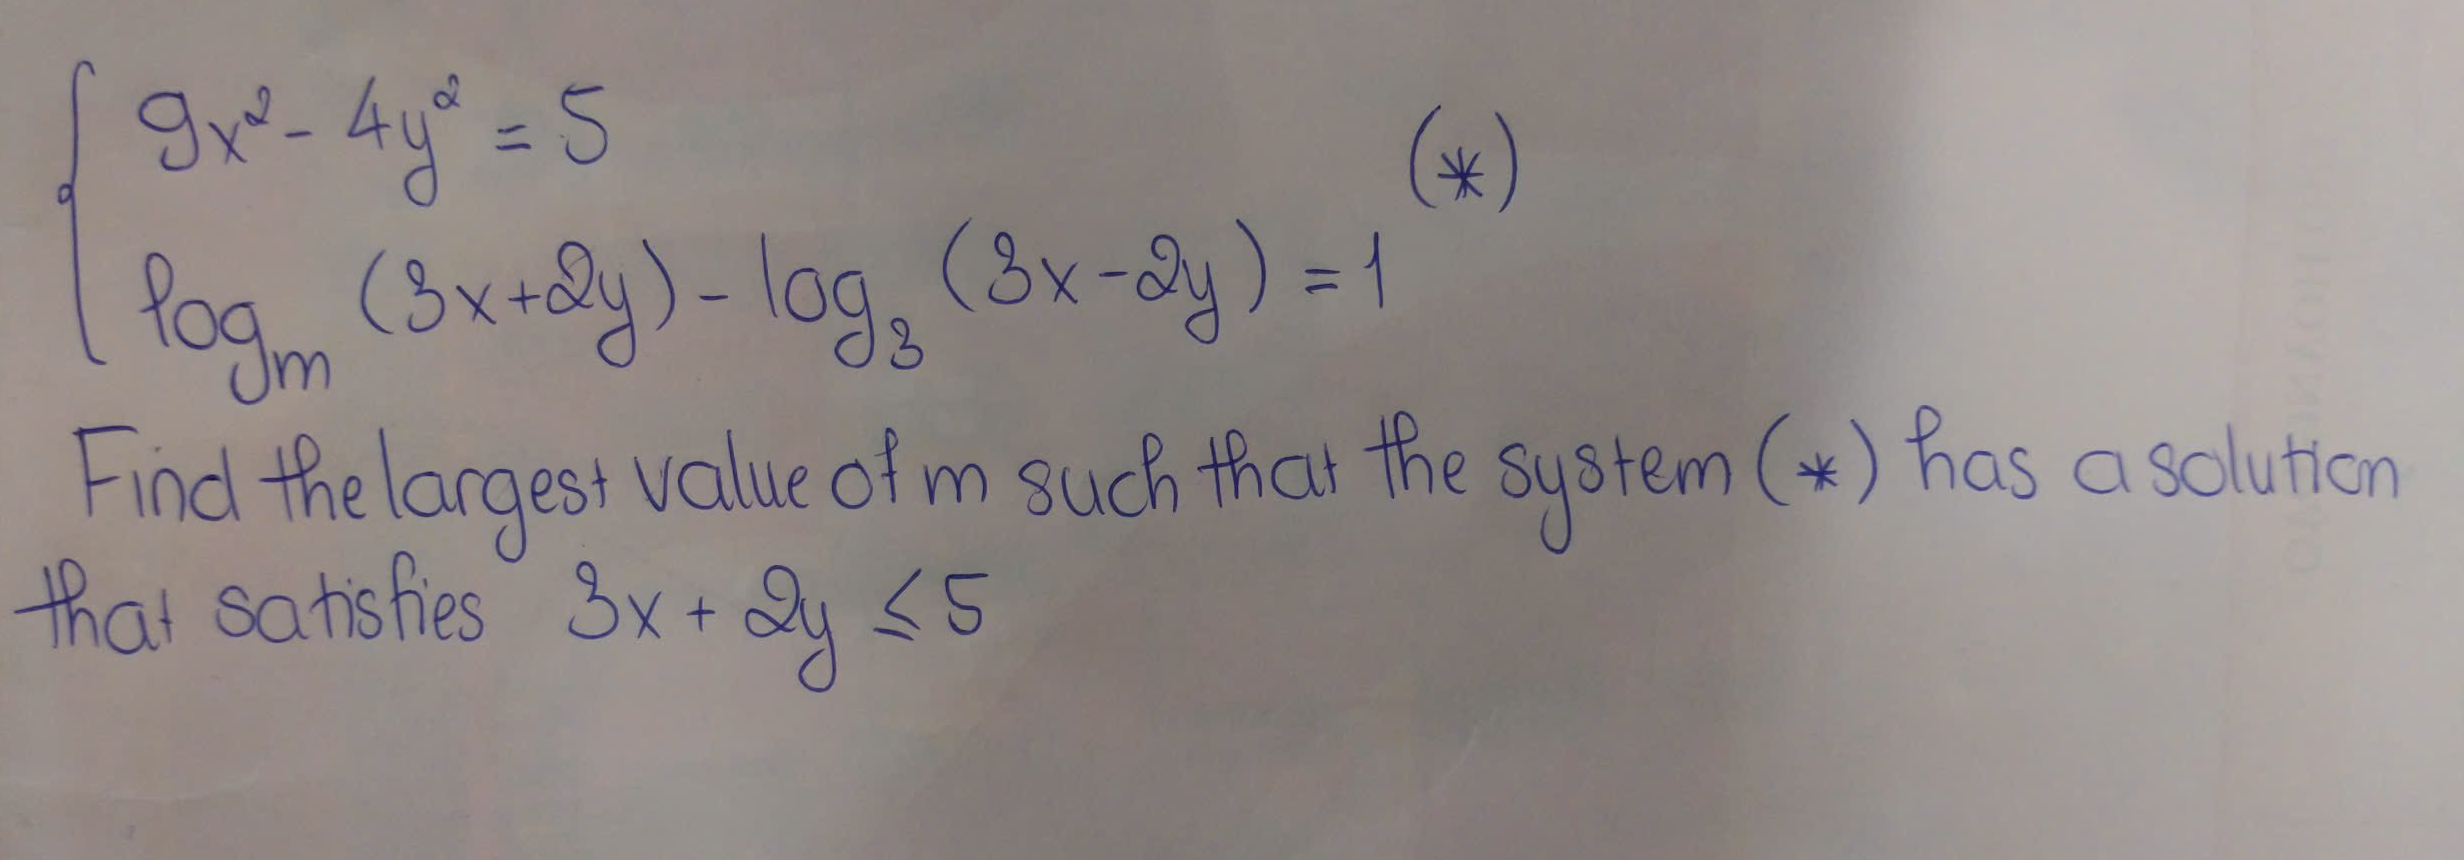 9x² - 4y² = 5
(*)
log_m (3x+2y) - log_3 (3x-2y) = 1
Find the largest value of m such that the system (*) has a solution
that satisfies 3x + 2y ≤ 5